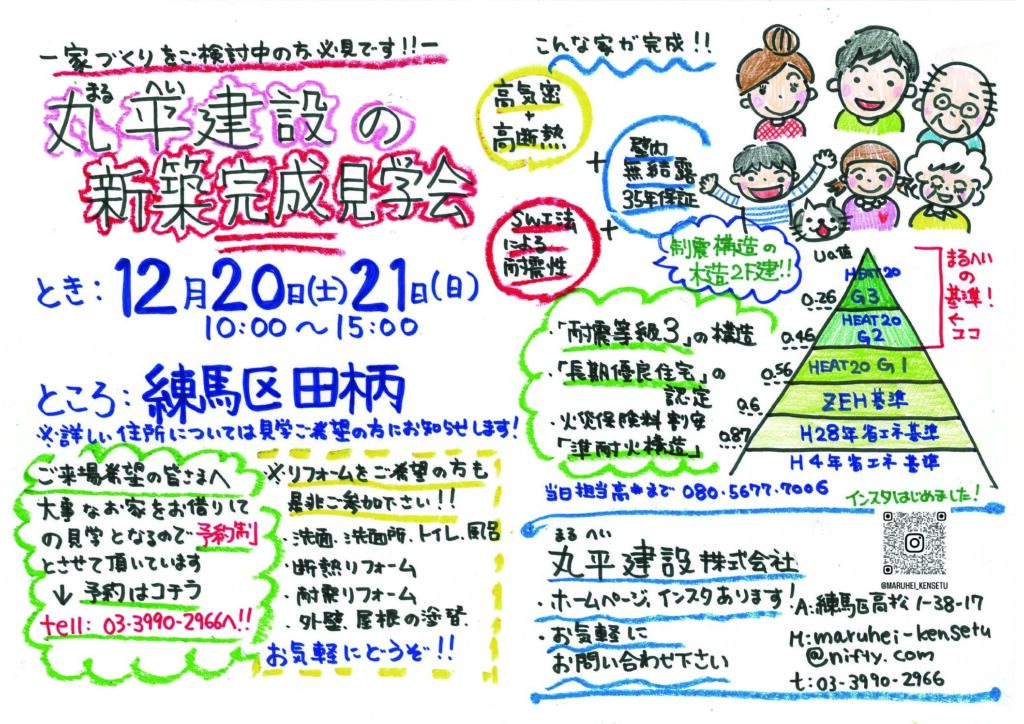 ー家づくりをご検討中の方必見です!!ー
まる へい
丸平建設の
新築完成見学会
とき: 12月20日(土)21日(日)
10:00〜15:00
ところ: 練馬区田柄
※詳しい住所については見学ご希望の方にお知らせします!
ご来場希望の皆さまへ
大事なお家をお借りして
の見学となるので「予約制」
とさせて頂いています
↓予約はコチラ
tell: 03-3990-2966へ!!
※リフォームをご希望の方も
是非ご参加下さい!!
・洗面、洗面所、トイレ、風呂
・断熱リフォーム
・耐震リフォーム
・外壁、屋根の塗替
お気軽にどうぞ!!
こんな家が完成!!
高気密
+
高断熱
+
壁内
無結露
35年保証
+
SW工法
による
耐震性
制震構造の
木造2F建!!
・「耐震等級3」の構造
・「長期優良住宅」の
認定
・火災保険料割安
「準耐火構造」
Ua値
HEAT20
G3
0.26
HEAT20
G2
0.46
HEAT20 G1
0.56
ZEH基準
0.6
H28年省エネ基準
0.87
H4年省エネ基準
まるへい
の
基準!
←
ココ
当日担当高*まで 080-5677-7006
インスタはじめました!
@MARUHEI_KENSETU
まる へい
丸平建設株式会社
・ホームページ、インスタあります!
・お気軽に
お問い合わせ下さい
A:練馬区高松1-38-17
M:maruhei-kensetu
@nifty.com
t:03-3990-2966